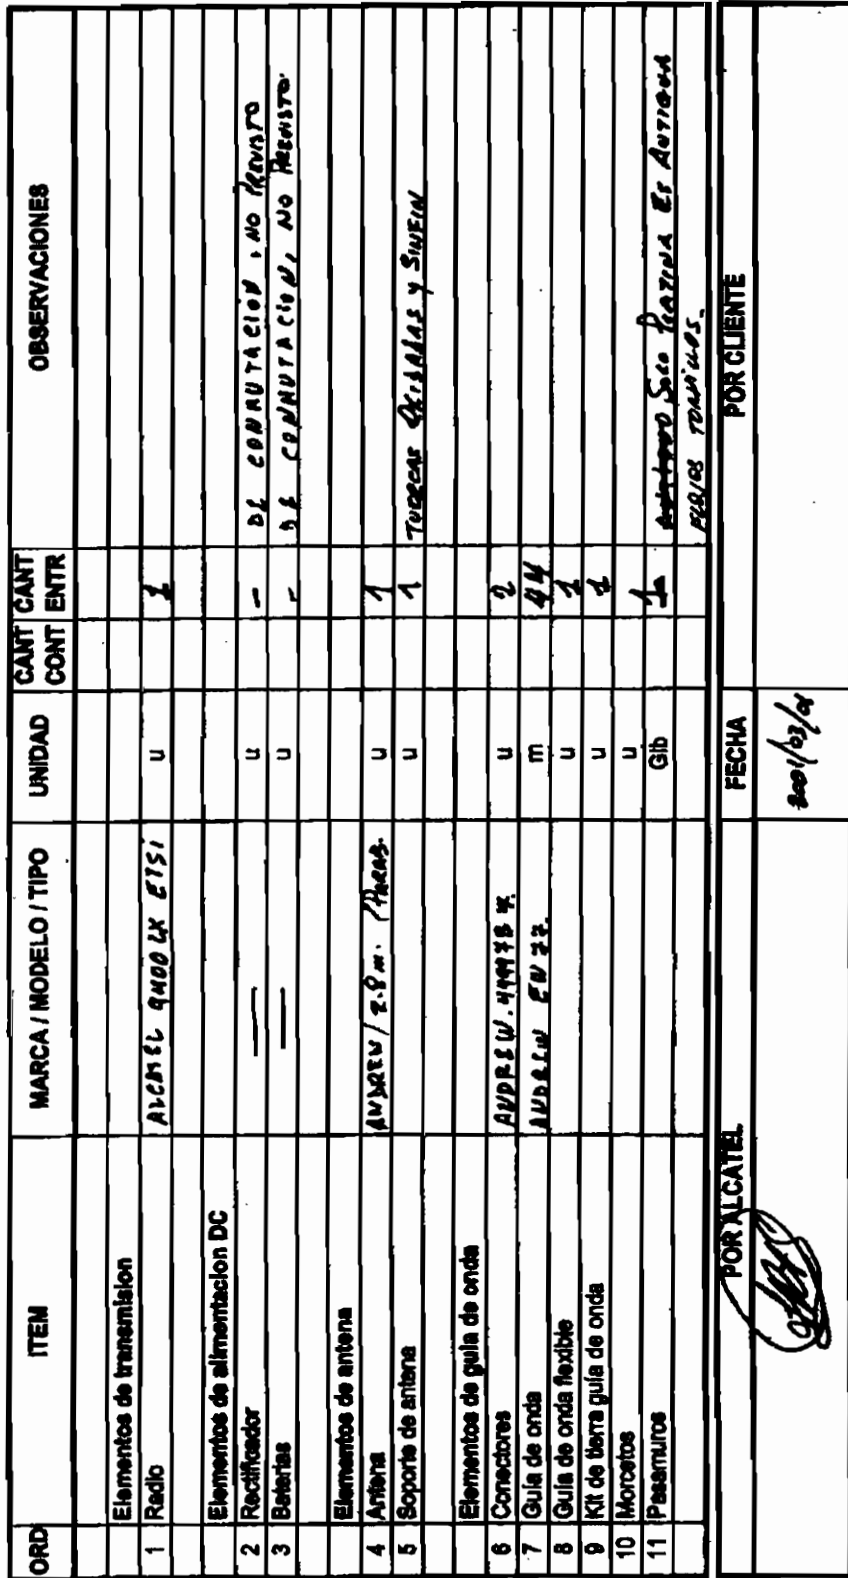 ORD ITEM MARCA / MODELO / TIPO UNIDAD CANT CONT CANT ENTR OBSERVACIONES
Elementos de transmision
1 Radio ALCATEL 9400 LX ETSI u 1
Elementos de alimentacion DC
2 Rectificador — u - DE CONMUTACION, NO PREVISTO
3 Baterias — u - DE CONMUTACION, NO PREVISTO.
Elementos de antena
4 Antena ANDREW / 2.8 m. / PARAB. u 1
5 Soporte de antena u 1 TUERCAS OXIDADAS Y SINFIN
Elementos de guía de onda
6 Conectores ANDREW. u 2
7 Guía de onda ANDREW EW 77. m 44
8 Guía de onda flexible u 1
9 Kit de tierra guía de onda u 1
10 Morcetos u
11 Pasamuros Glb 1 Solo PLATINA Es ANTIGUA
TORNILLOS.
POR ALCATEL FECHA POR CLIENTE
2001/03/01